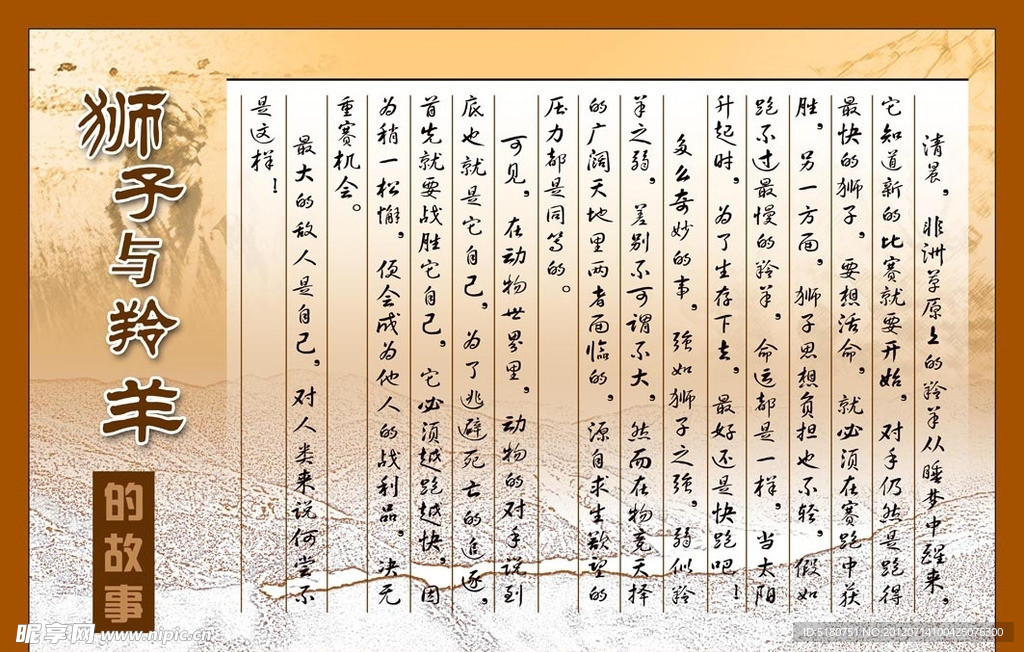 狮子与羚羊
的故事
清晨，非洲草原上的羚羊从睡梦中醒来，
它知道新的比赛就要开始，对手仍然是跑得
最快的狮子，要想活命，就必须在赛跑中获
胜，另一方面，狮子思想负担也不轻，假如
跑不过最慢的羚羊，命运都是一样，当太阳
升起时，为了生存下去，最好还是快跑吧！
多么奇妙的事，强如狮子之强，弱似羚
羊之弱，差别不可谓不大，然而在物竞天择
的广阔天地里两者面临的，源自求生欲望的
压力都是同等的。
可见，在动物世界里，动物的对手说到
底也就是它自己，为了逃避死亡的追逐，
首先就要战胜它自己，它必须越跑越快，因
为稍一松懈，便会成为他人的战利品，决无
重赛机会。
最大的敌人是自己，对人类来说何尝不
是这样！
昵享网 www.nipic.cn
ID:5180751 NO:20120714100425075300